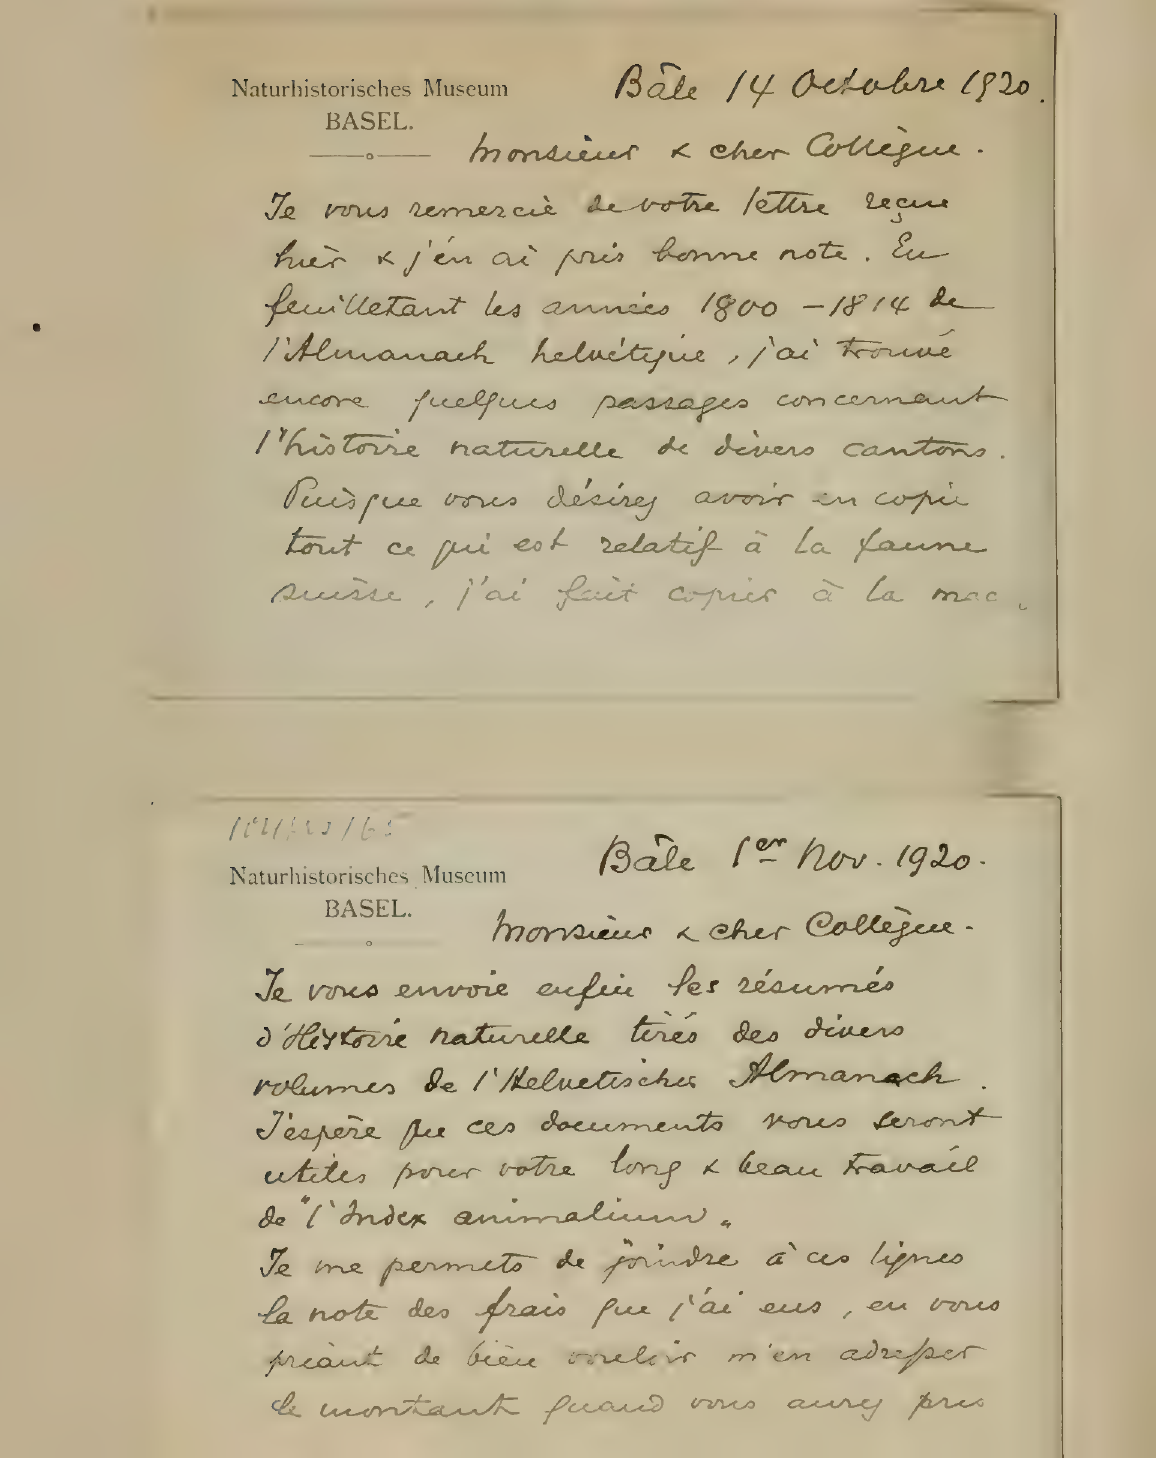 Naturhistorisches Museum
BASEL.
Bâle 14 Octobre 1920.
Monsieur & cher Collègue.
Je vous remercie de votre lettre reçue
hier & j'en ai pris bonne note. En
feuilletant les années 1800 – 1814 de
l'Almanach helvétique, j'ai trouvé
encore quelques passages concernant
l'histoire naturelle de divers cantons.
Puisque vous désirez avoir en copie
tout ce qui est relatif à la faune
suisse, j'ai fait copier à la mac
Naturhistorisches Museum
BASEL.
Bâle 1er Nov. 1920.
Monsieur & cher Collègue.
Je vous envoie enfin les résumés
d'Histoire naturelle tirés des divers
volumes de l'Helvetischer Almanach.
J'espère que ces documents vous seront
utiles pour votre long & beau travail
de "l'Index animalium"
Je me permets de joindre à ces lignes
la note des frais que j'ai eus, en vous
priant de bien vouloir m'en adresser
le montant quand vous aurez pris